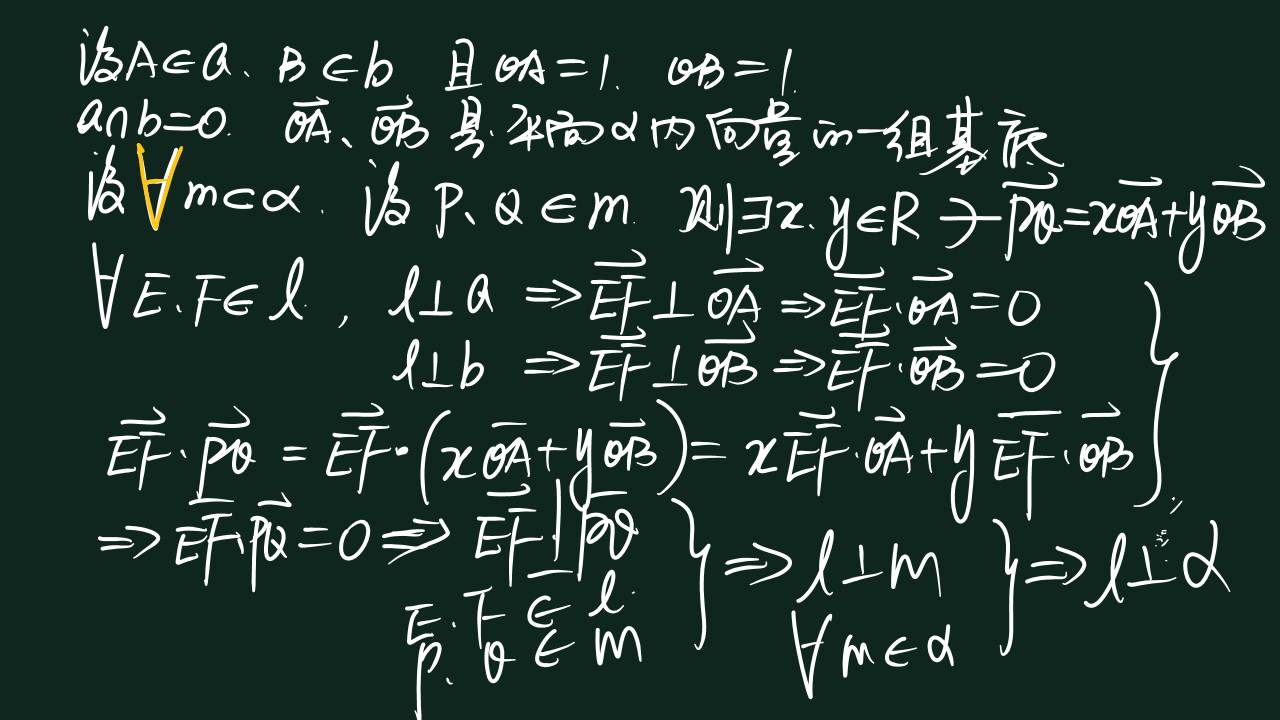 设A∈a、B∈b 且OA=1. OB=1
a∩b=O. \overrightarrow{OA}、\overrightarrow{OB}是平面α内向量的一组基底
设∀m⊂α. 设P、Q∈m. 则∃x.y∈R→\overrightarrow{PQ}=x\overrightarrow{OA}+y\overrightarrow{OB}
∀E.F∈l, l⊥a ⇒\overrightarrow{EF}⊥\overrightarrow{OA}⇒\overrightarrow{EF}·\overrightarrow{OA}=0
l⊥b ⇒\overrightarrow{EF}⊥\overrightarrow{OB}⇒\overrightarrow{EF}·\overrightarrow{OB}=0
\overrightarrow{EF}·\overrightarrow{PQ}=\overrightarrow{EF}·(x\overrightarrow{OA}+y\overrightarrow{OB})=x\overrightarrow{EF}·\overrightarrow{OA}+y\overrightarrow{EF}·\overrightarrow{OB}
⇒\overrightarrow{EF}·\overrightarrow{PQ}=0⇒\overrightarrow{EF}⊥\overrightarrow{PQ} } ⇒l⊥m } ⇒l⊥α
E.F∈l.
P.Q∈m ∀m∈α